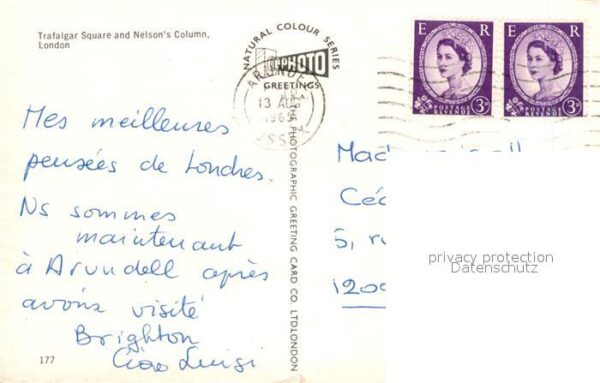 Trafalgar Square and Nelson's Column,
London
NATURAL COLOUR SERIES
PHOTO
GREETINGS
13 AUG
THE PHOTOGRAPHIC GREETING CARD CO. LTD LONDON
E R
POSTAGE
REVENUE
3D
E R
POSTAGE
REVENUE
3D
Mes meilleures
pensées de Londres.
Ns sommes
maintenant
à Arundell après
avoir visité
Brighton
Ciao Luigi
5,
privacy protection
Datenschutz
177